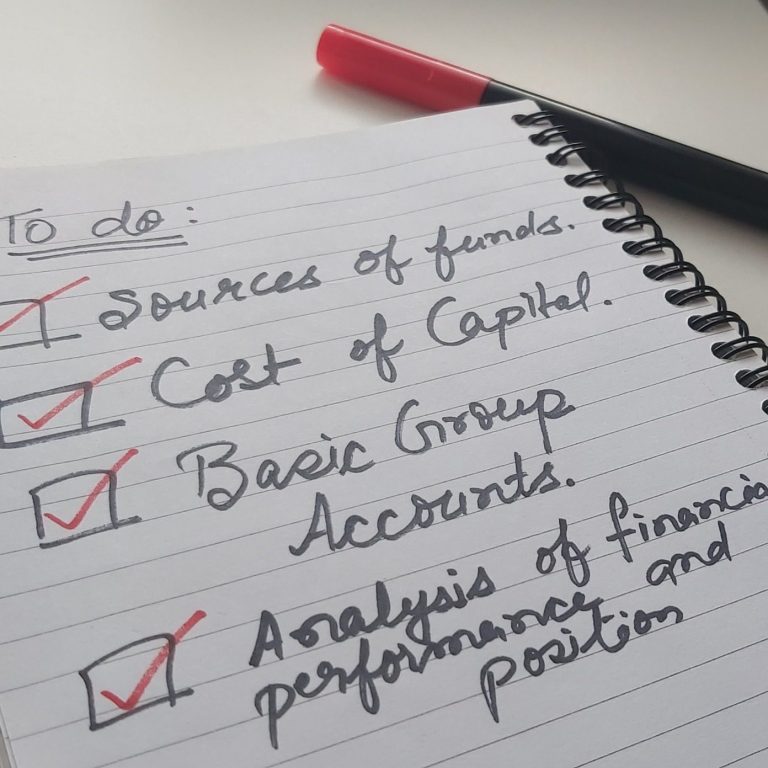 To do:
Sources of funds.
Cost of Capital.
Basic Group
Accounts.
Analysis of financia
performance and
position